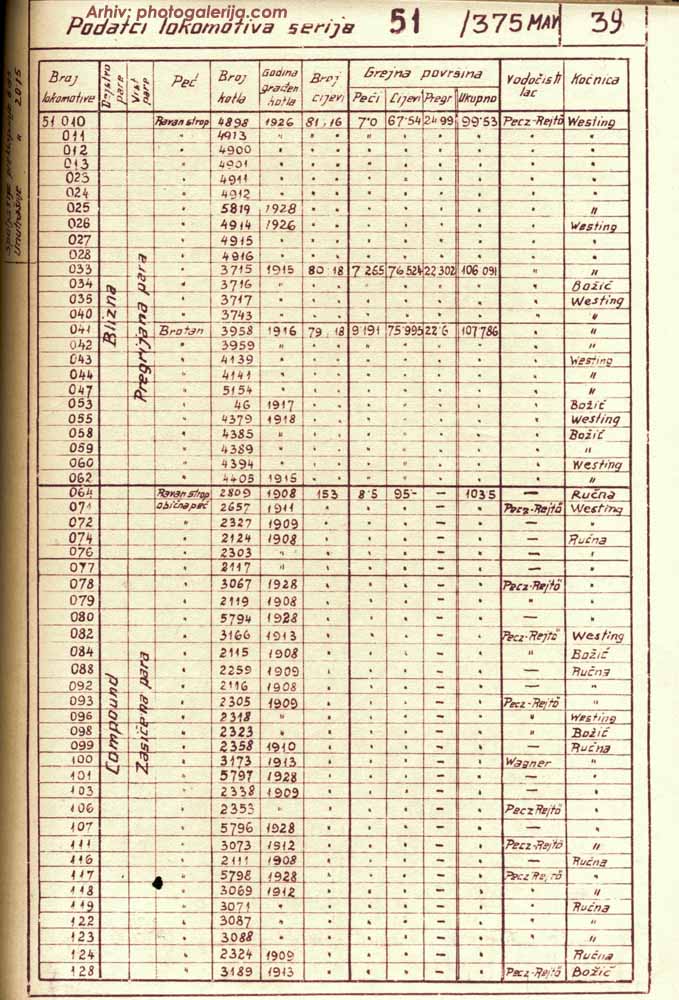 Arhiv: photogalerija.com
Podatci lokomotiva serija 51 /375 MAV 39
Broj lokomotive Dejstvo pare Vrst pare Peć Broj kotla Godina građen kotla Broj cijevi Grejna površina Vodočisti lac Kočnica
Peći Cijevi Pregr Ukupno
51 010 Ravan strop 4898 1926 81, 16 7·0 67·54 24 99 99·53 Pecz-Rejtö Westing
011 " 4913 " " " " " " " " "
012 " 4900 " " " " " " " " "
013 " 4901 " " " " " " " " "
023 " 4911 " " " " " " " " "
024 " 4912 " " " " " " " " "
025 " 5819 1928 " " " " " " " "
026 " 4914 1926 " " " " " " " Westing
027 " 4915 " " " " " " " " "
028 " 4916 " " " " " " " " "
033 " 3715 1915 80 18 7 265 76 524 22 302 106 091 " "
034 " 3716 " " " " " " " " Božić
035 " 3717 " " " " " " " " Westing
040 " 3743 " " " " " " " " "
041 Brotan 3958 1916 79, 18 9·191 75·995 22 6 107 786 " "
042 " 3959 " " " " " " " " "
043 " 4139 " " " " " " " " Westing
044 " 4141 " " " " " " " " "
047 " 5154 " " " " " " " " "
053 " 46 1917 " " " " " " " Božić
055 " 4379 1918 " " " " " " " Westing
058 " 4385 " " " " " " " " Božić
059 " 4389 " " " " " " " " "
060 " 4394 " " " " " " " " Westing
062 " 4405 1915 " " " " " " " "
Blizna Pregrijana para
064 Ravan strop 2809 1908 153 8·5 95·- — 103 5 — Ručna
071 obična peć 2657 1911 " " " — " Pecz-Rejtö Westing
072 " 2327 1909 " " " — " — "
074 " 2124 1908 " " " — " — Ručna
076 " 2303 " " " " — " — "
077 " 2117 " " " " — " — "
078 " 3067 1928 " " " — " Pecz-Rejtö "
079 " 2119 1908 " " " — " " "
080 " 5794 1928 " " " — " — "
082 " 3166 1913 " " " — " Pecz-Rejtö Westing
084 " 2115 1908 " " " — " " Božić
088 " 2259 1909 " " " — " — Ručna
092 " 2116 1908 " " " — " — "
093 " 2305 1909 " " " — " Pecz-Rejtö "
096 " 2318 " " " " — " " Westing
098 " 2323 " " " " — " " Božić
099 " 2358 1910 " " " — " — Ručna
100 " 3173 1913 " " " — " Wagner "
101 " 5797 1928 " " " — " — "
103 " 2338 1909 " " " — " — "
106 " 2353 " " " " — " Pecz Rejtö "
107 " 5796 1928 " " " — " — "
111 " 3073 1912 " " " — " Pecz-Rejtö "
116 " 2111 1908 " " " — " — Ručna
117 " 5798 1928 " " " — " Pecz Rejtö "
118 " 3069 1912 " " " — " " "
119 " 3071 " " " " — " " Ručna
122 " 3087 " " " " — " " "
123 " 3088 " " " " — " " "
124 " 2324 1909 " " " — " — Ručna
128 " 3189 1913 " " " — " Pecz Rejtö Božić
Compound Zasićena para